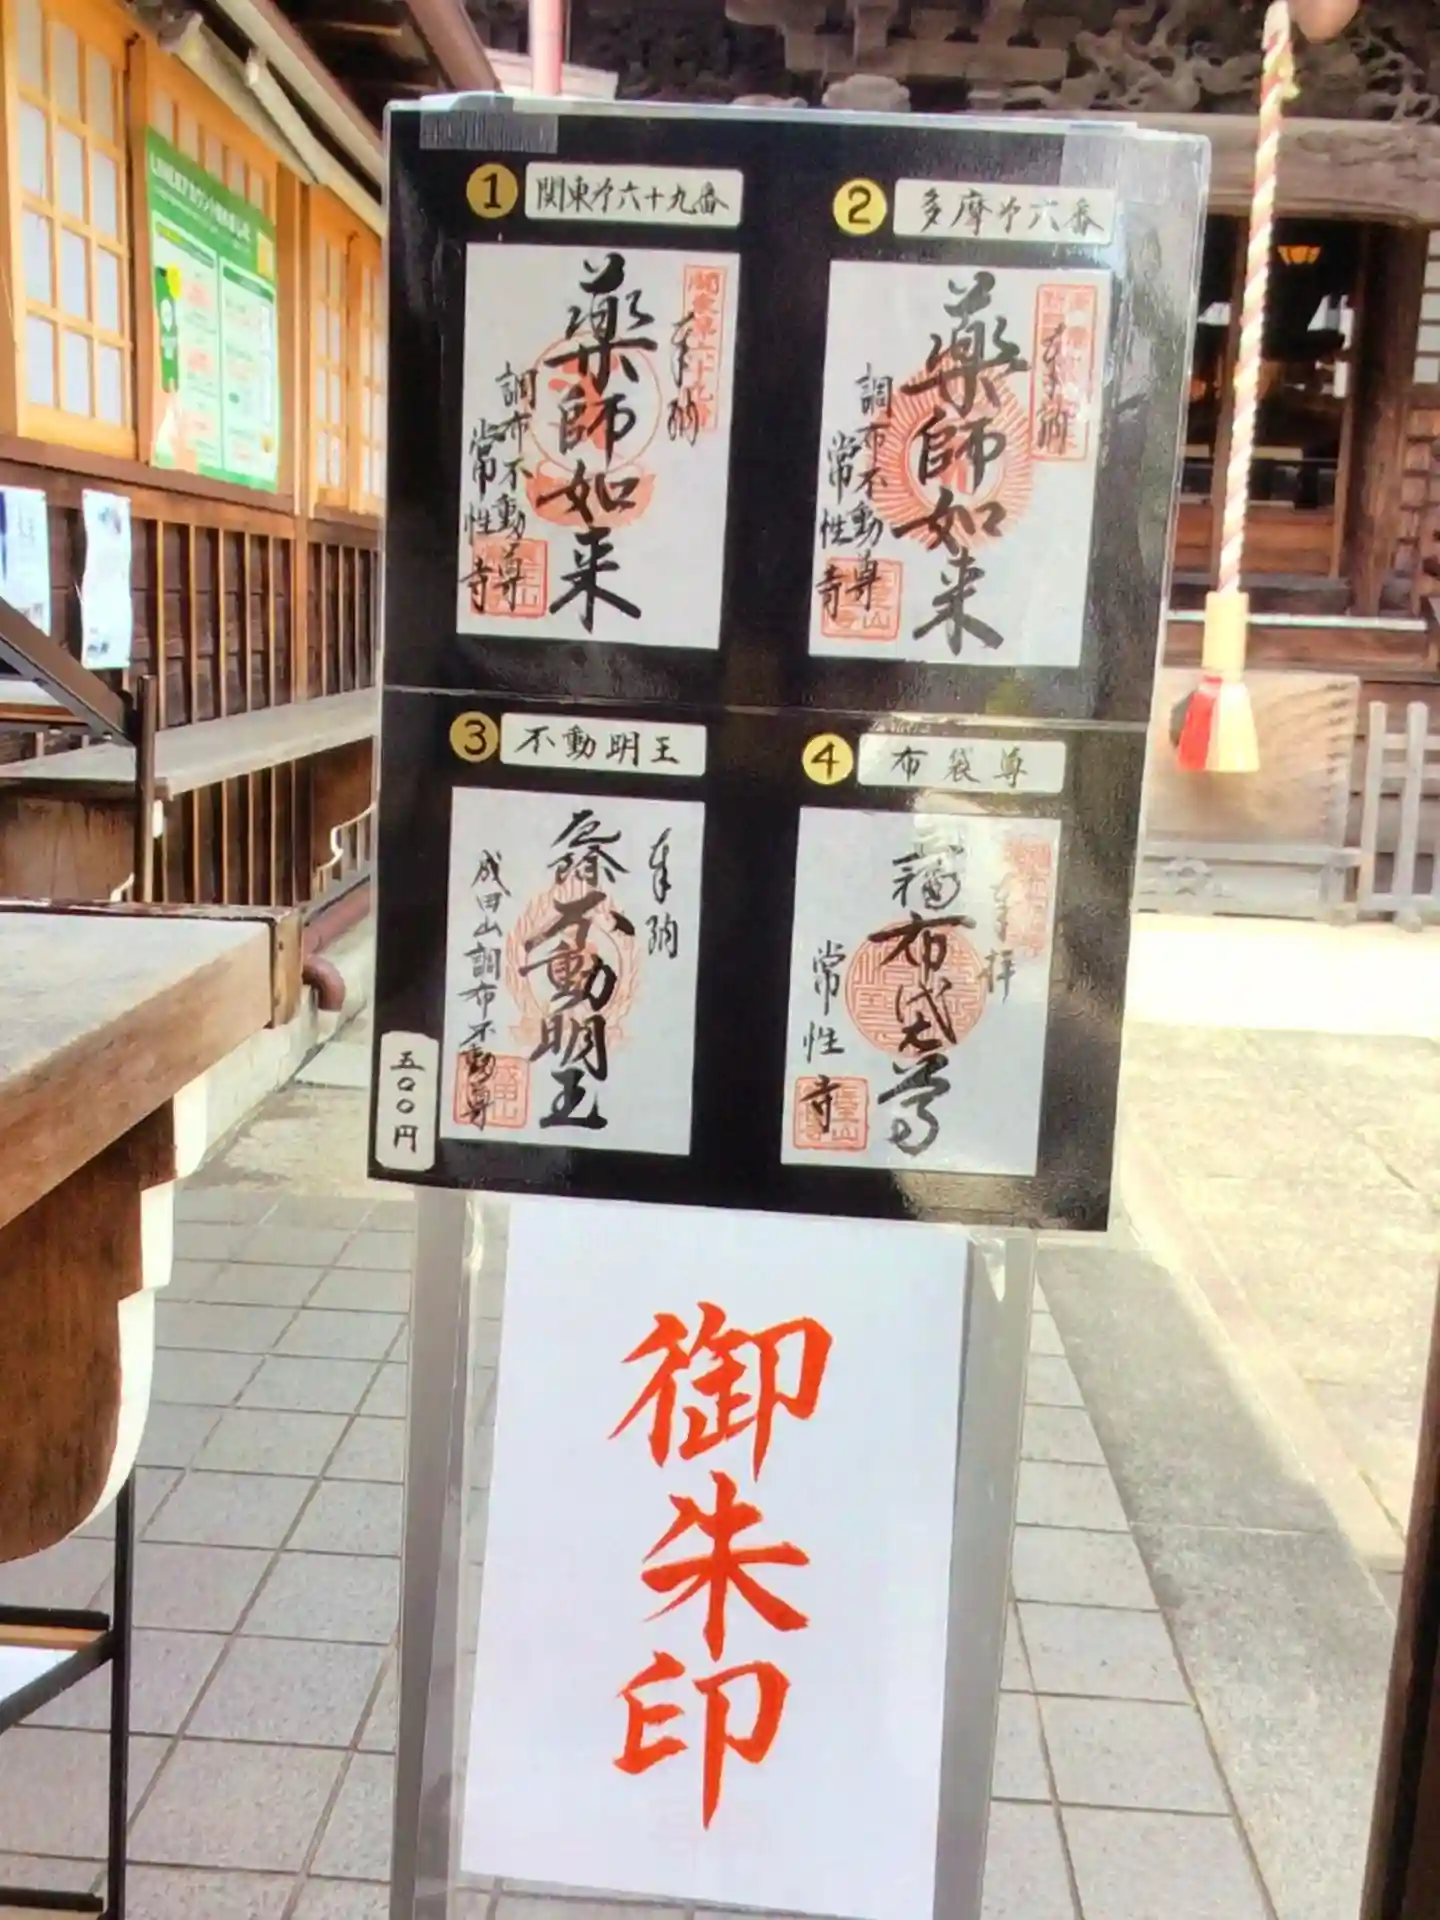 ① 関東第六十九番
奉納
薬師如来
調布不動尊
常性寺
② 多摩第六番
奉納
薬師如来
調布不動尊
常性寺
③ 不動明王
奉納
厄除
不動明王
成田山調布不動尊
④ 布袋尊
奉拝
布袋尊
常性寺
五〇〇円
御朱印